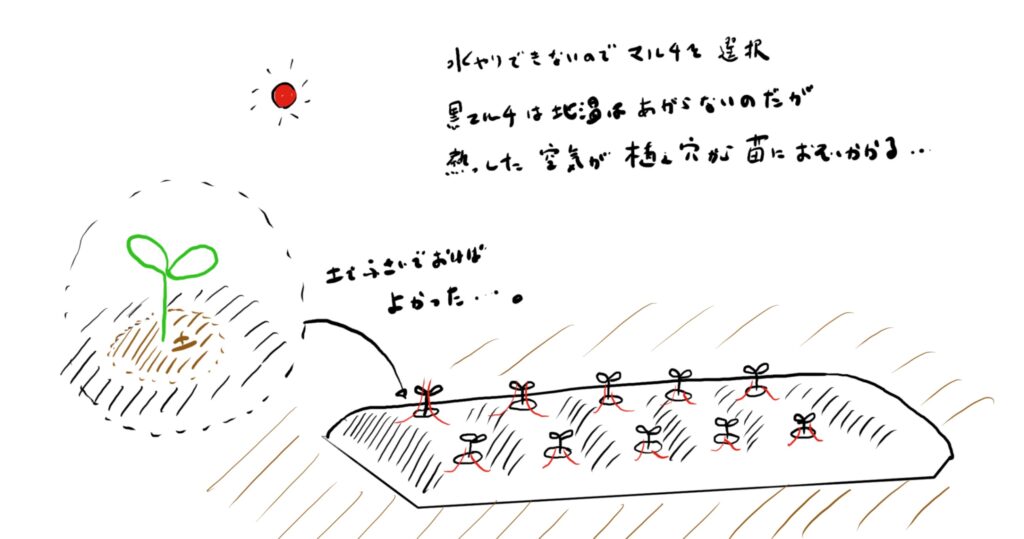 水やりできないのでマルチを選択
黒マルチは地温はあがらないのだが
熱っした空気が植え穴から苗におそいかかる...
土でふさいでおけば
よかった...。
土